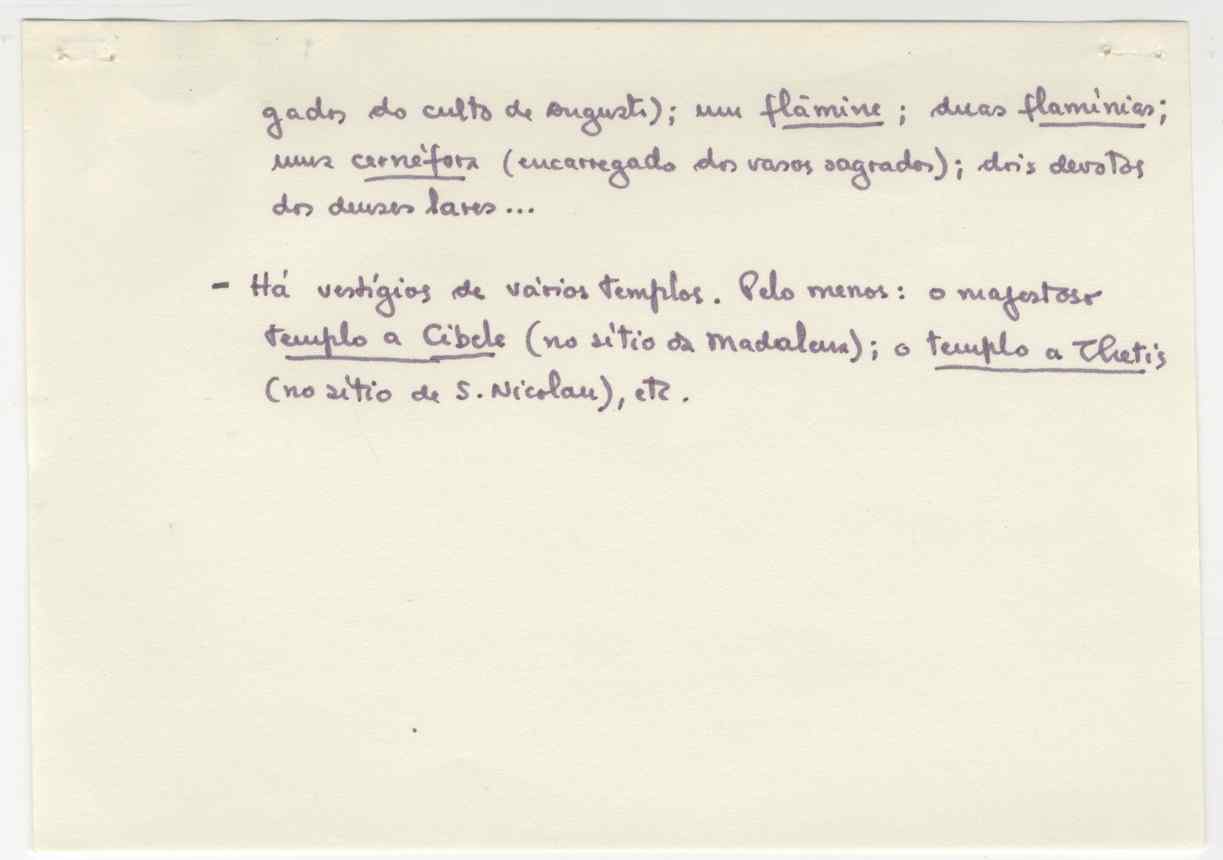 gados do culto de Augusto); um flâmine; duas flamínias;
uma cernéfora (encarregado dos vasos sagrados); dois devotos
dos deuses lares...
- Há vestígios de vários templos. Pelo menos: o majestoso
templo a Cibele (no sítio da Madalena); o templo a Thetis
(no sítio de S. Nicolau), etc.